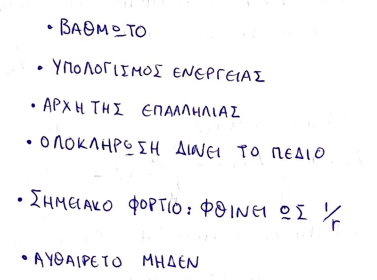 • ΒΑΘΜΩΤΟ
• ΥΠΟΛΟΓΙΣΜΟΣ ΕΝΕΡΓΕΙΑΣ
• ΑΡΧΗ ΤΗΣ ΕΠΑΛΛΗΛΙΑΣ
• ΟΛΟΚΛΗΡΩΣΗ ΔΙΝΕΙ ΤΟ ΠΕΔΙΟ
• ΣΗΜΕΙΑΚΟ ΦΟΡΤΙΟ: ΦΘΙΝΕΙ ΩΣ 1/r
• ΑΥΘΑΙΡΕΤΟ ΜΗΔΕΝ